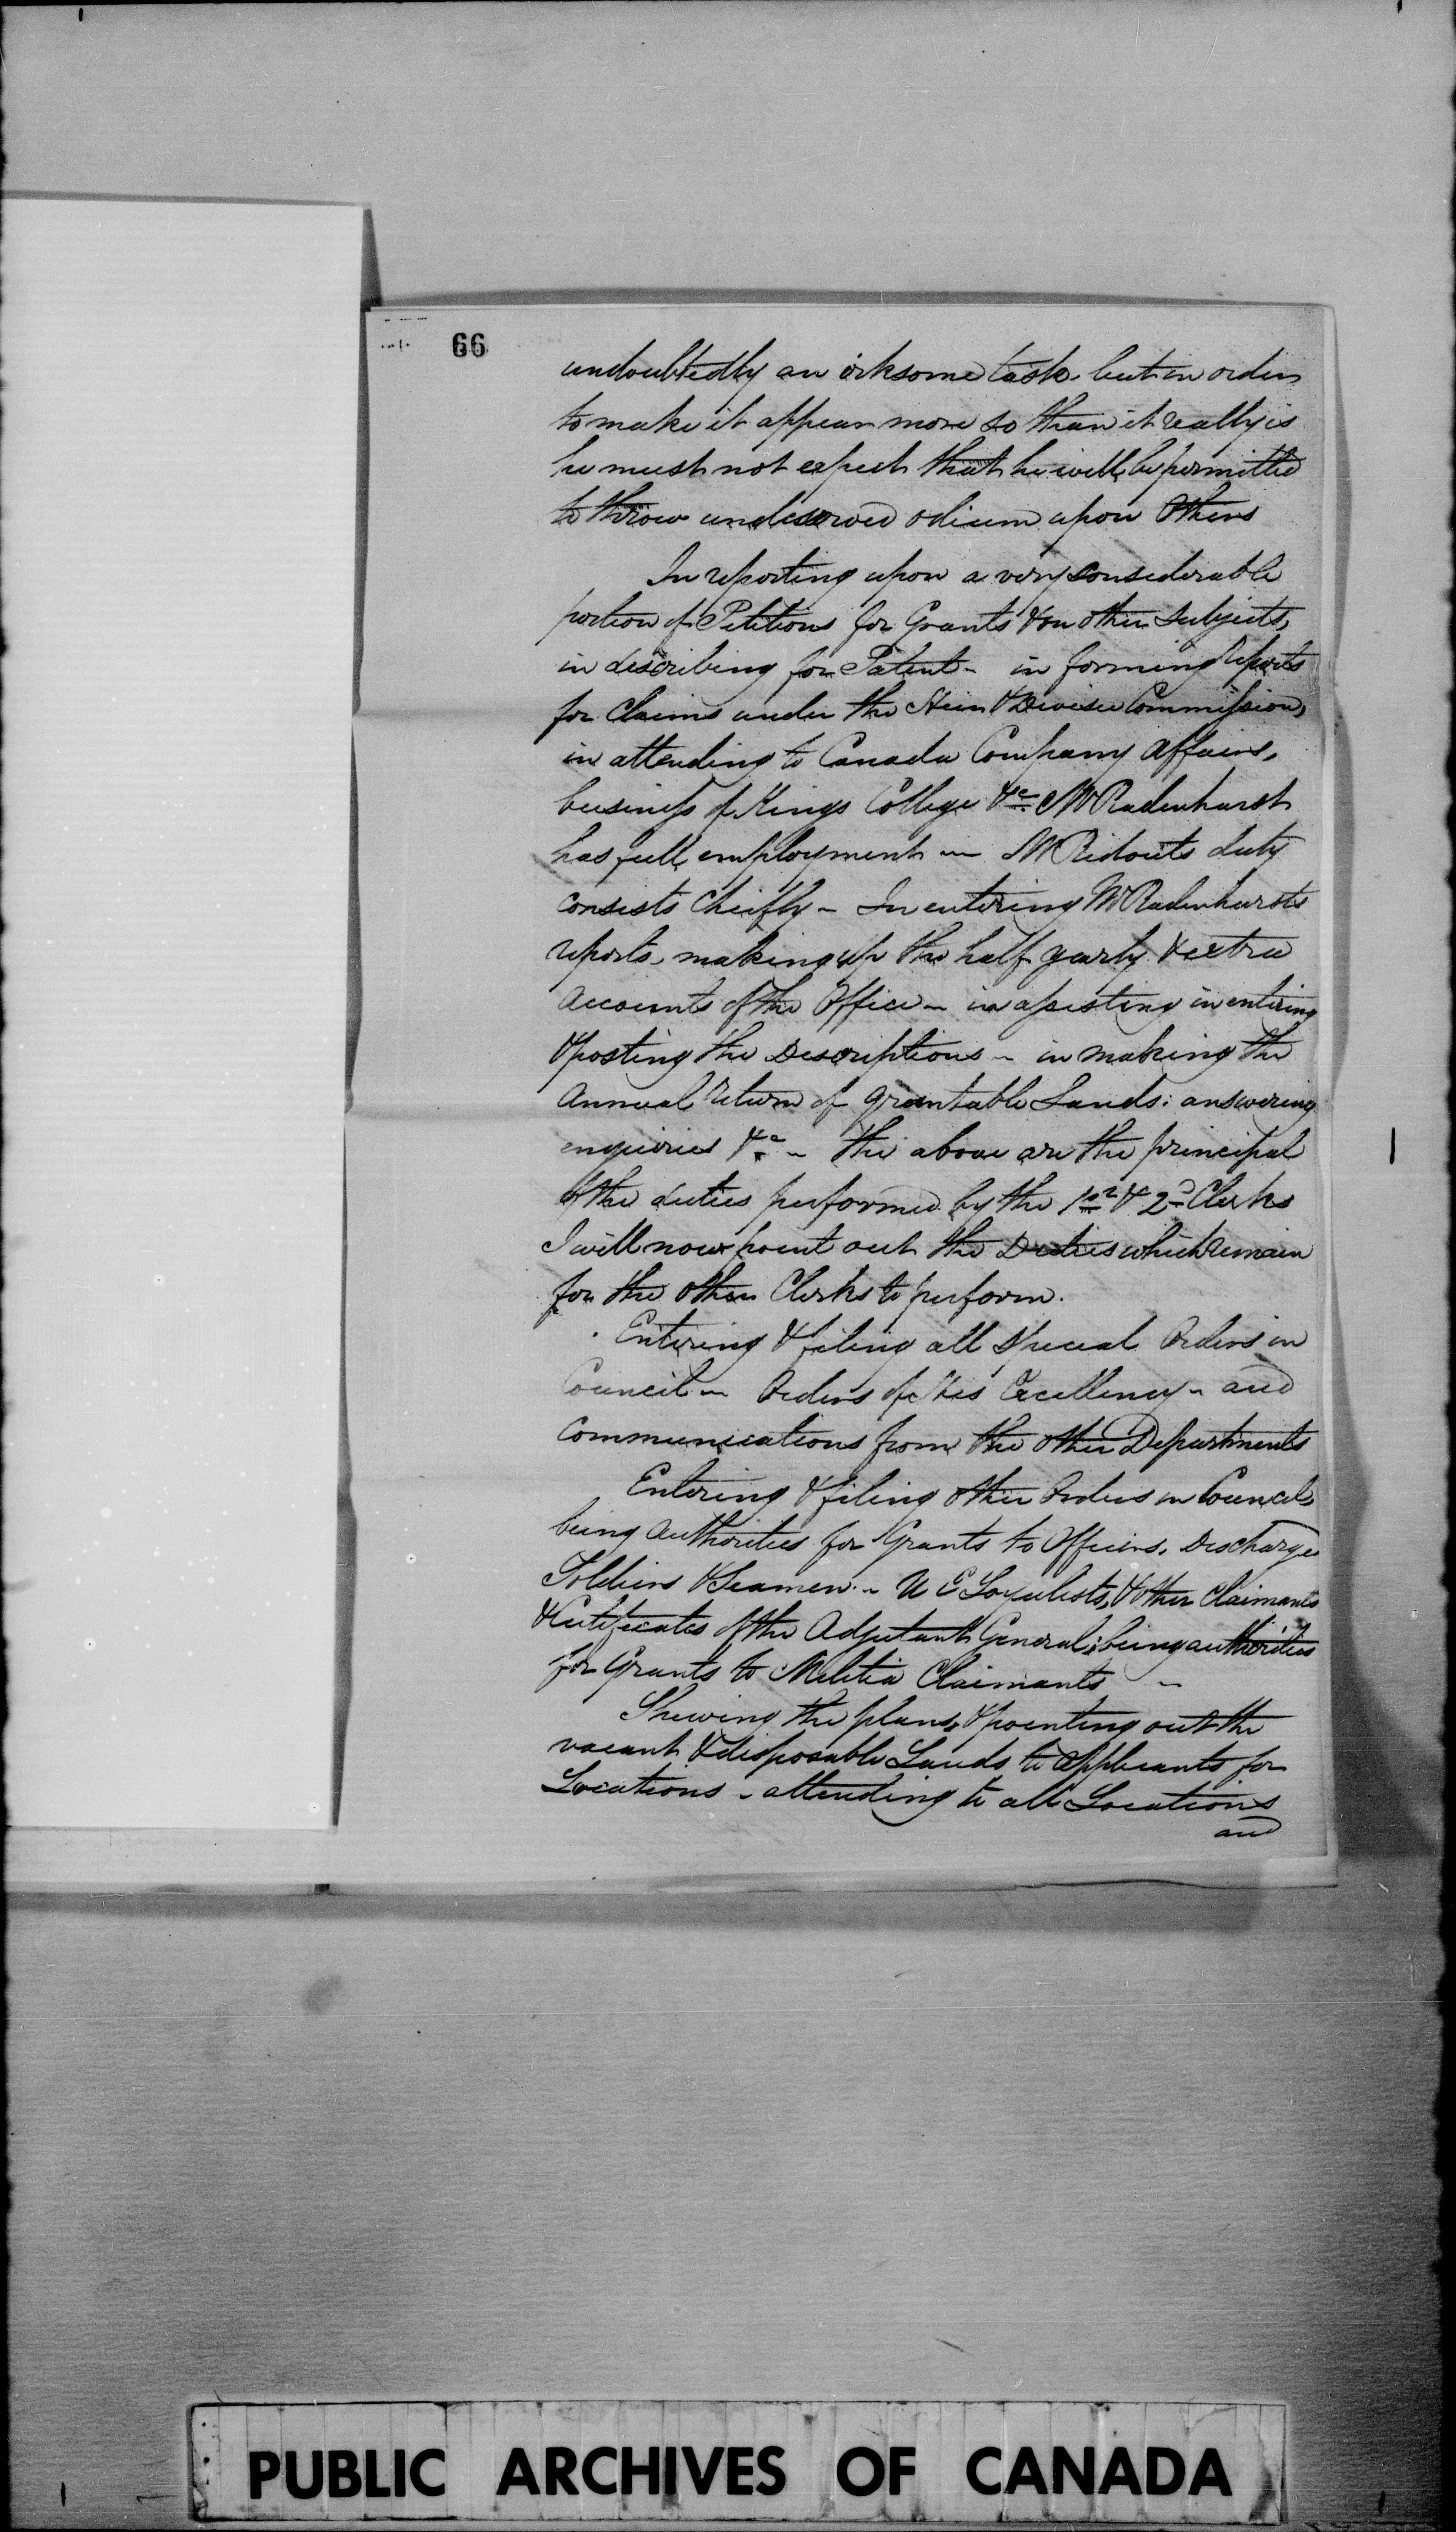 66
undoubtedly an irksome task. but in order
to make it appear more so than it really is
he must not expect that he will be permitted
to throw undeserved odium upon Others
In reporting upon a very considerable
portion of Petitions for Grants & on other subjects,
in describing for Patent - in forming reports
for Claims under the Heir & Devisee Commission,
in attending to Canada Company Affairs,
business of Kings College &c. Mr Radenhurst
has full employment - Mr Ridouts duty
consists Cheifly - In entering Mr Radenhursts
reports, making up the half yearly & extra
Accounts of the Office - in assisting in entering
& posting the Descriptions - in making the
Annual return of grantable Lands: answering
enquiries &c - the above are the principal
of the duties performed by the 1st & 2d Clerks
I will now point out the Duties which remain
for the other Clerks to perform.
Entering & filing all Special Orders in
Council - Orders of His Excellency - and
Communications from the other Departments
Entering & filing other Orders in Council,
being Authorities for Grants to Officers, Discharged
Soldiers & Seamen - U E Loyalists, & other Claimants
& Certificates of the Adjutant General; being authorities
for Grants to Militia Claimants -
Shewing the plans, & pointing out the
vacant & disposable Lands to applicants for
Locations - attending to all Locations
and
PUBLIC ARCHIVES OF CANADA